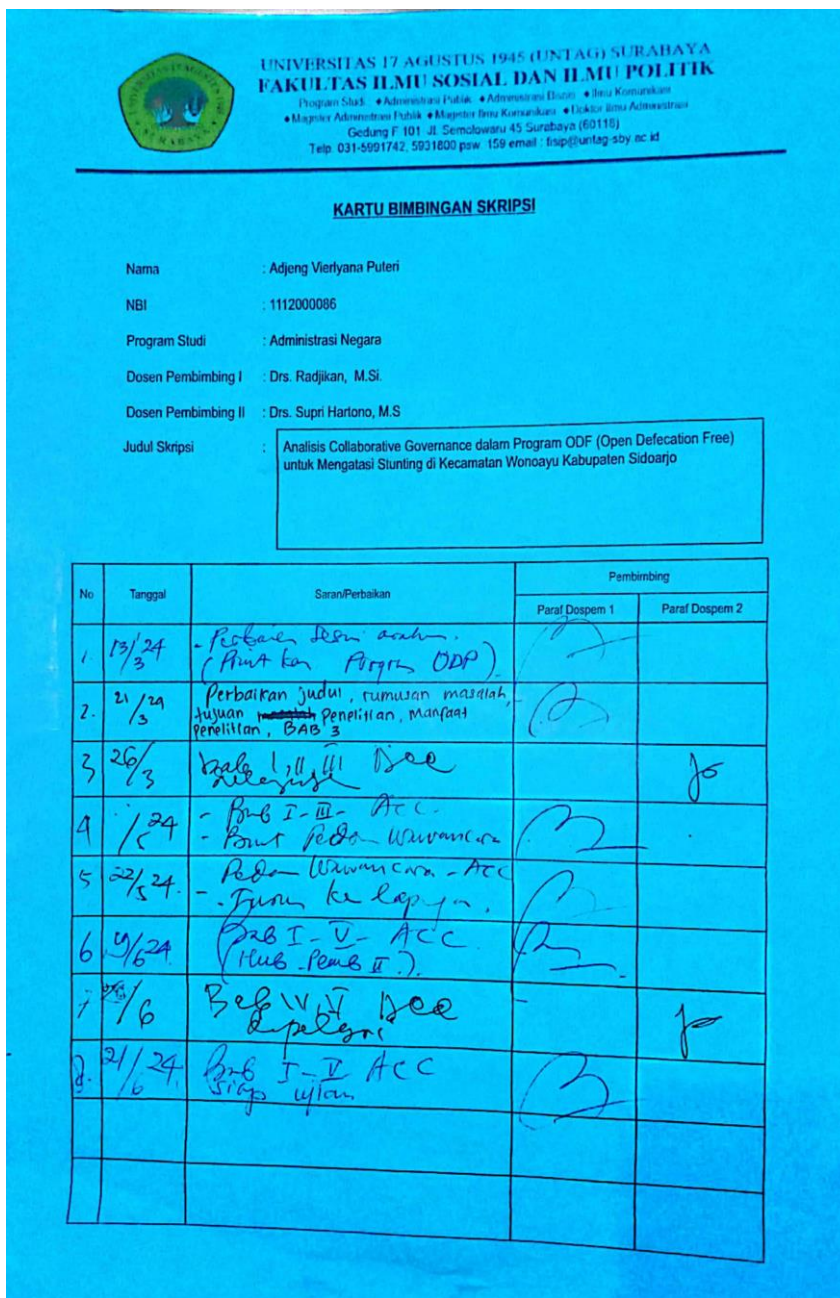 UNIVERSITAS 17 AGUSTUS 1945 (UNTAG) SURABAYA
FAKULTAS ILMU SOSIAL DAN ILMU POLITIK
Program Studi : ♦Administrasi Publik ♦Administrasi Bisnis ♦Ilmu Komunikasi
♦Magister Administrasi Publik ♦Magister Ilmu Komunikasi ♦Doktor Ilmu Administrasi
Gedung F 101 Jl. Semolowaru 45 Surabaya (60118)
Telp. 031-5991742, 5931800 psw. 159 email : fisip@untag-sby.ac.id
KARTU BIMBINGAN SKRIPSI
Nama : Adjeng Vierlyana Puteri
NBI : 1112000086
Program Studi : Administrasi Negara
Dosen Pembimbing I : Drs. Radjikan, M.Si.
Dosen Pembimbing II : Drs. Supri Hartono, M.S
Judul Skripsi : Analisis Collaborative Governance dalam Program ODF (Open Defecation Free)
untuk Mengatasi Stunting di Kecamatan Wonoayu Kabupaten Sidoarjo
No Tanggal Saran/Perbaikan Pembimbing
Paraf Dospem 1 Paraf Dospem 2
1. 13/3 '24 - 
( ODP)
2. 21/3 24 Perbaikan judul, rumusan masalah,
tujuan Penelitian, Manfaat
Penelitian, BAB 3
3 26/3 bab I, II, III Acc
4 24 - Bab I-III- ACC.
- Wawancara
5 22/5 24. Wawancara - Acc
- Turun ke lapangan.
6 24 Bab I-V- ACC
(Hub. Pemb II.).
7 /6 Bab IV, V Acc
8. 21/6 24. Bab I-V ACC
siap ujian